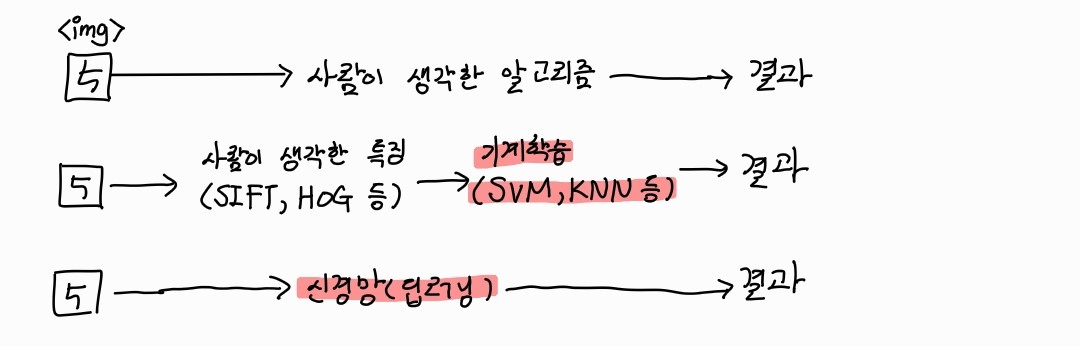 <img>
5 → 사람이 생각한 알고리즘 → 결과
사람이 생각한 특징 기계학습
5 → (SIFT, HOG 등) → (SVM, KNN 등) → 결과
5 → 신경망(딥러닝) → 결과